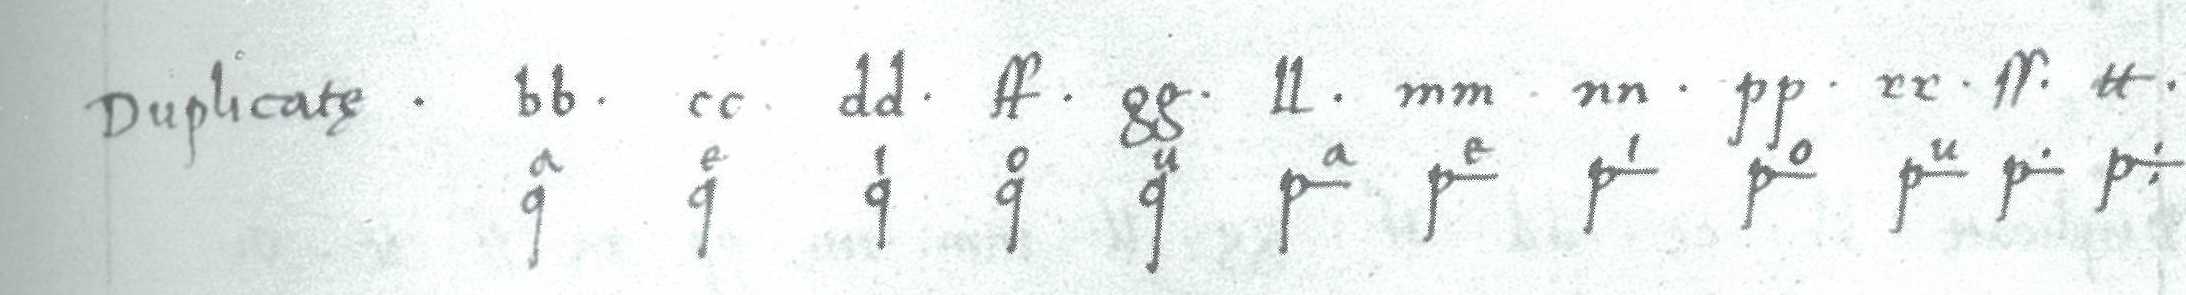 Duplicatę . bb . cc . dd . ff . gg . ll . mm . nn . pp . rr . ſſ . tt .
qᵃ qᵉ qⁱ qᵒ qᵘ pᵃ pᵉ pⁱ pᵒ pᵘ p· p: